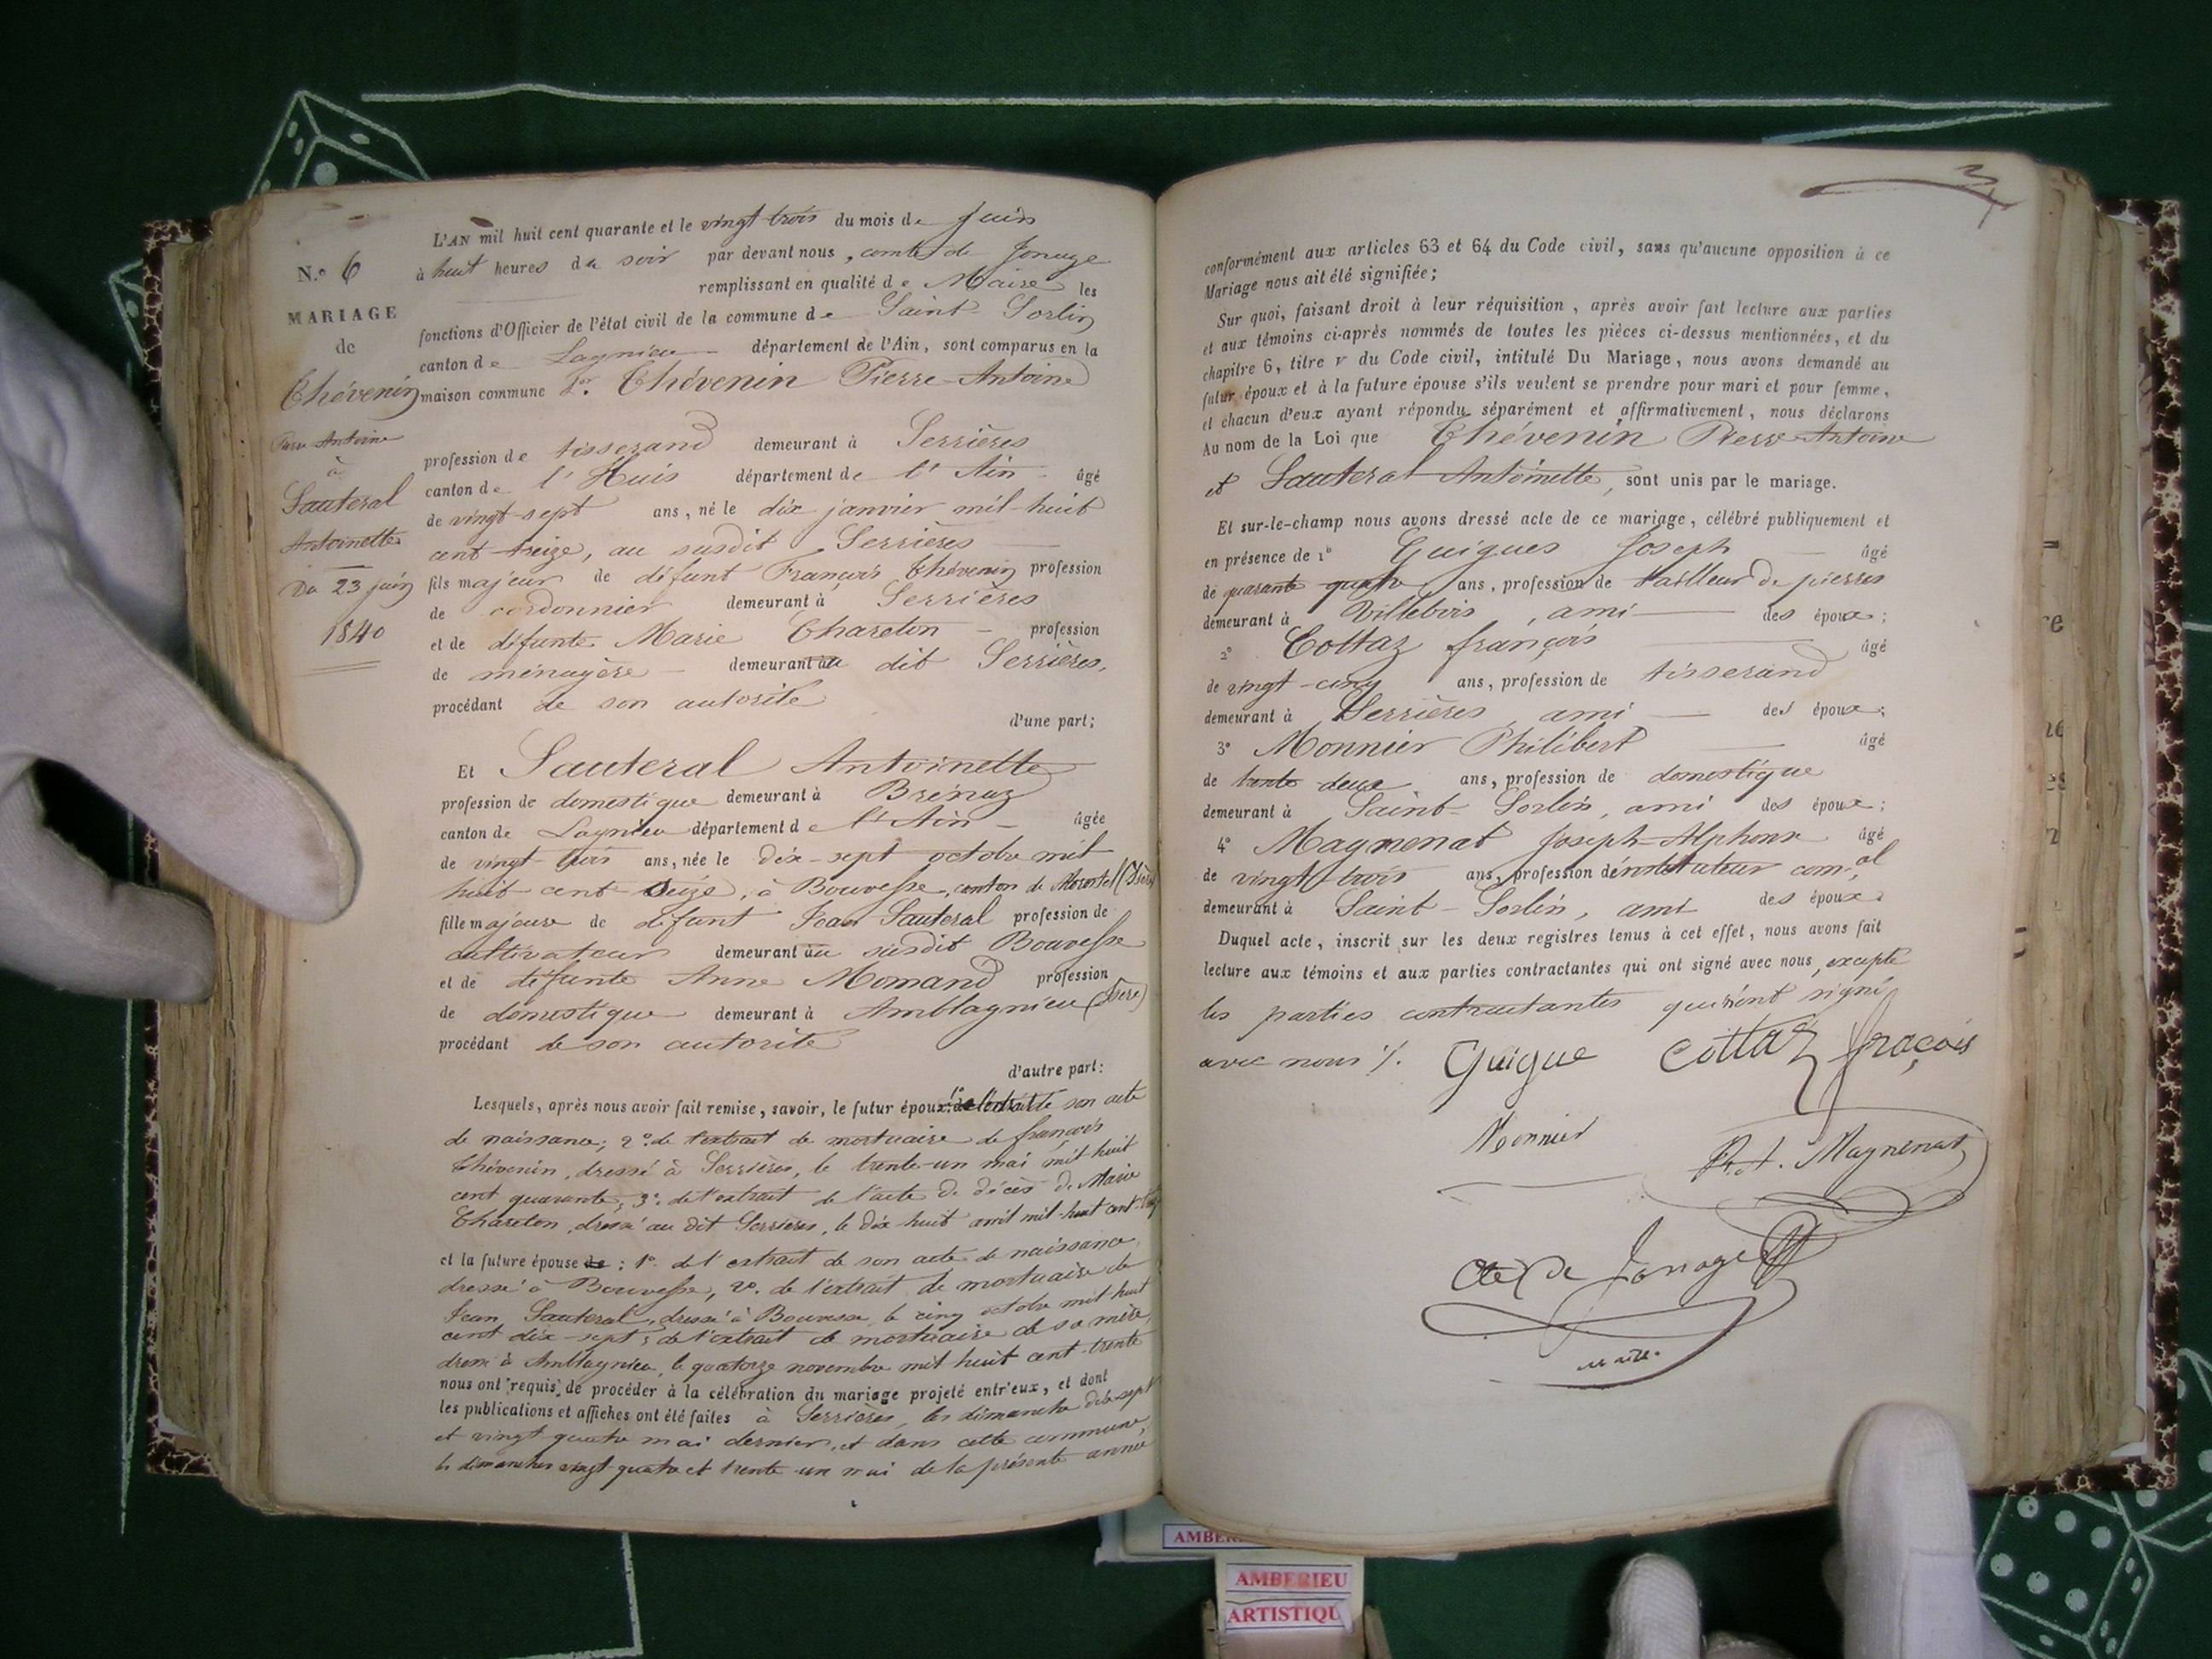 N.o 6
MARIAGE
de
Thévenin
Pierre Antoine
à
Sauteral
Antoinette
Du 23 juin
1840
L'AN mil huit cent quarante et le vingt trois du mois de juin
à huit heures du soir par devant nous, comte de Jonage
remplissant en qualité de Maire les
fonctions d'Officier de l'état civil de la commune de Saint Sorlin
canton de Lagnieu département de l'Ain, sont comparus en la
maison commune Thévenin Pierre-Antoine
profession de tisserand demeurant à Serrières
canton de l'Huis département de l'Ain âgé
de vingt-sept ans, né le dix janvier mil-huit
cent-treize, au susdit Serrières
fils majeur de défunt François Thévenin profession
de cordonnier demeurant à Serrières
et de défunte Marie Chareton profession
de ménagère demeurant au dit Serrières,
procédant de son autorité
d'une part;
Et Sauteral Antoinette
profession de domestique demeurant à Brénaz
canton de Lagnieu département de l'Ain âgée
de vingt-trois ans, née le dix-sept octobre mil
huit cent seize, à Bouvesse, canton de Morestel (Isère)
fille majeure de défunt Jean Sauteral profession de
cultivateur demeurant au susdit Bouvesse
et de défunte Anne Momand profession
de domestique demeurant à Amblagnieu (Isère)
procédant de son autorité
d'autre part:
Lesquels, après nous avoir fait remise, savoir, le futur époux: son acte
de naissance; 2o. de l'extrait de mortuaire de françois
Thévenin, dressé à Serrières, le trente-un mai mil huit
cent quarante, 3o. de l'extrait de l'acte de décès de Marie
Chareton, dressé au dit Serrières, le dix huit avril mil-huit cent
et la future épouse : 1o. de l'extrait de son acte de naissance
dressé à Bouvesse, 2o. de l'extrait de mortuaire de
Jean Sauteral, dressé à Bouvesse le cinq octobre mil huit
cent dix-sept; de l'extrait de mortuaire de sa mère,
dressé à Amblagnieu, le quatorze novembre mil huit cent-trente
nous ont requis de procéder à la célébration du mariage projeté entr'eux, et dont
les publications et affiches ont été faites à Serrières, les dimanche dix-sept
et vingt quatre mai dernier, et dans cette commune,
les dimanches vingt quatre et trente-un mai de la présente année
conformément aux articles 63 et 64 du Code civil, sans qu'aucune opposition à ce
Mariage nous ait été signifiée;
Sur quoi, faisant droit à leur réquisition, après avoir fait lecture aux parties
et aux témoins ci-après nommés de toutes les pièces ci-dessus mentionnées, et du
chapitre 6, titre V du Code civil, intitulé Du Mariage, nous avons demandé au
futur époux et à la future épouse s'ils veulent se prendre pour mari et pour femme,
et chacun d'eux ayant répondu séparément et affirmativement, nous déclarons
Au nom de la Loi que Thévenin Pierre-Antoine
et Sauteral Antoinette, sont unis par le mariage.
Et sur-le-champ nous avons dressé acte de ce mariage, célébré publiquement et
en présence de 1o Guigues Joseph âgé
de quarante quatre ans, profession de tailleur de pierres
demeurant à Villebois, ami des époux;
2o Cottaz françois âgé
de vingt-cinq ans, profession de tisserand
demeurant à Serrières, ami des époux;
3o Monnier Philibert âgé
de trente deux ans, profession de domestique
demeurant à Saint-Sorlin, ami des époux;
4o Magnenat Joseph-Alphonse âgé
de vingt-trois ans, profession d'instituteur com.al
demeurant à Saint-Sorlin, ami des époux.
Duquel acte, inscrit sur les deux registres tenus à cet effet, nous avons fait
lecture aux témoins et aux parties contractantes qui ont signé avec nous, excepté
les parties contractantes qui n'ont signé
avec nous /. Guigue Cottaz fraçois
Monnier
Magnenat
Cte de Jonage
maire.
AMBERIEU
ARTISTIQU